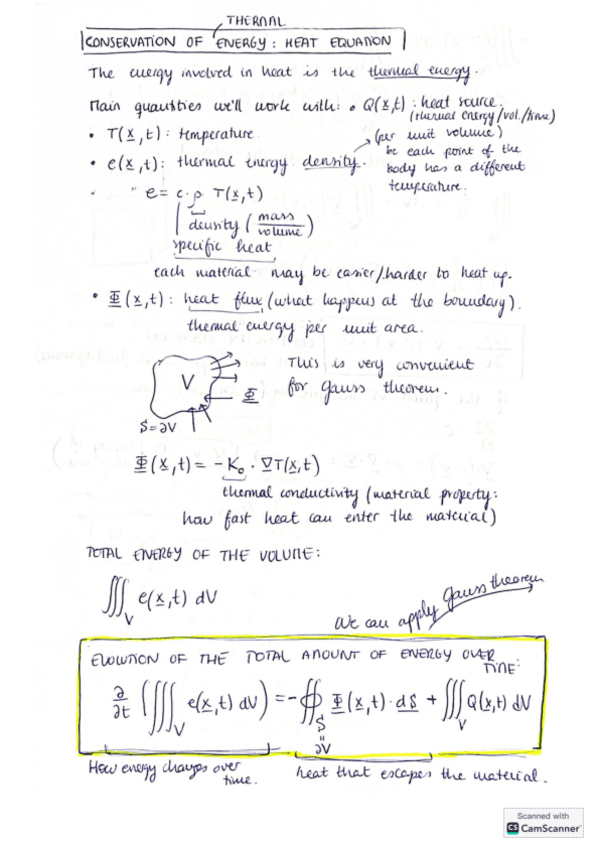 THERMAL
CONSERVATION OF ENERGY: HEAT EQUATION
The energy involved in heat is the thermal energy.
Main quantities we'll work with: • Q(x,t): heat source.
(thermal energy/vol./time)
• T(x,t): temperature
• e(x,t): thermal energy density.
(per unit volume)
bc each point of the
body has a different
temperature.
e = c·ρ T(x,t)
density (mass/volume)
specific heat
each material may be easier/harder to heat up.
• Φ(x,t): heat flux (what happens at the boundary).
thermal energy per unit area.
V
Φ
S=∂V
This is very convenient
for gauss theorem.
Φ(x,t) = -K₀ · ∇T(x,t)
thermal conductivity (material property:
how fast heat can enter the material)
TOTAL ENERGY OF THE VOLUME:
∭_V e(x,t) dV
We can apply Gauss theorem
EVOLUTION OF THE TOTAL AMOUNT OF ENERGY OVER
TIME:
∂/∂t (∭_V e(x,t) dV) = -∯_S Φ(x,t)·dS + ∭_V Q(x,t) dV
=
∂V
How energy changes over
time.
heat that escapes the material.
Scanned with
CS CamScanner